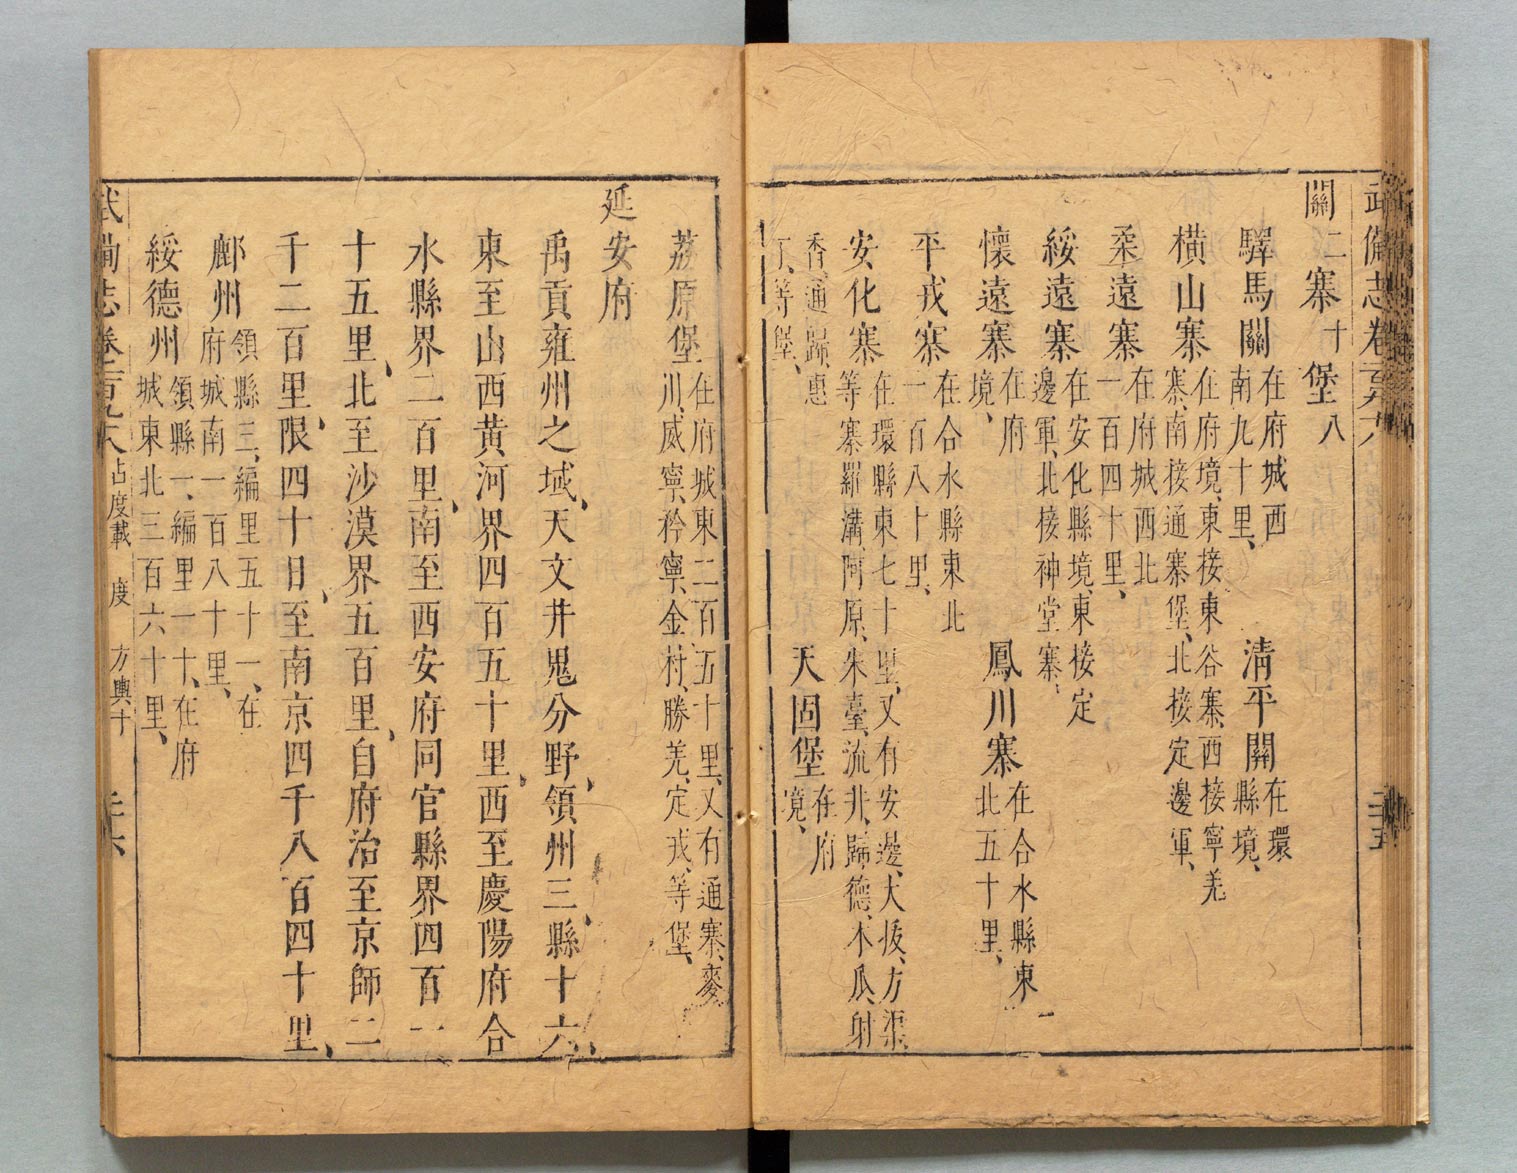 武備志卷一百九十八
二十五
關二寨十堡八
驛馬關在府城西南九十里、清平關在環縣境、
橫山寨在府境、東接東谷寨、西接寧羌寨、南接通塞堡、北接定邊軍、
柔遠寨在府城西北一百四十里、
綏遠寨在安化縣境、東接定邊軍、北接神堂寨、
懷遠寨在府境、鳳川寨在合水縣東北五十里、
平戎寨在合水縣東北一百八十里、
安化寨在環縣東七十里、又有安邊、大拔、方渠、等寨羅溝、阿原、朱臺、流井、歸德、木瓜、射
香、通歸、惠丁、等堡、天固堡在府境、
荔原堡在府城東二百五十里、又有通塞、麥川、威寧、矜寧、金村、勝羌、定戎、等堡、
延安府
禹貢雍州之域、天文井鬼分野、領州三、縣十六、
東至山西黃河界四百五十里、西至慶陽府合
水縣界二百里、南至西安府同官縣界四百一
十五里、北至沙漠界五百里、自府治至京師二
千二百里、限四十日、至南京四千八百四十里、
鄜州領縣三、編里五十一、在府城南一百八十里、
綏德州領縣一、編里一十、在府城東北三百六十里、
武備志卷一百九十八 占度載 度 方輿十 二十六